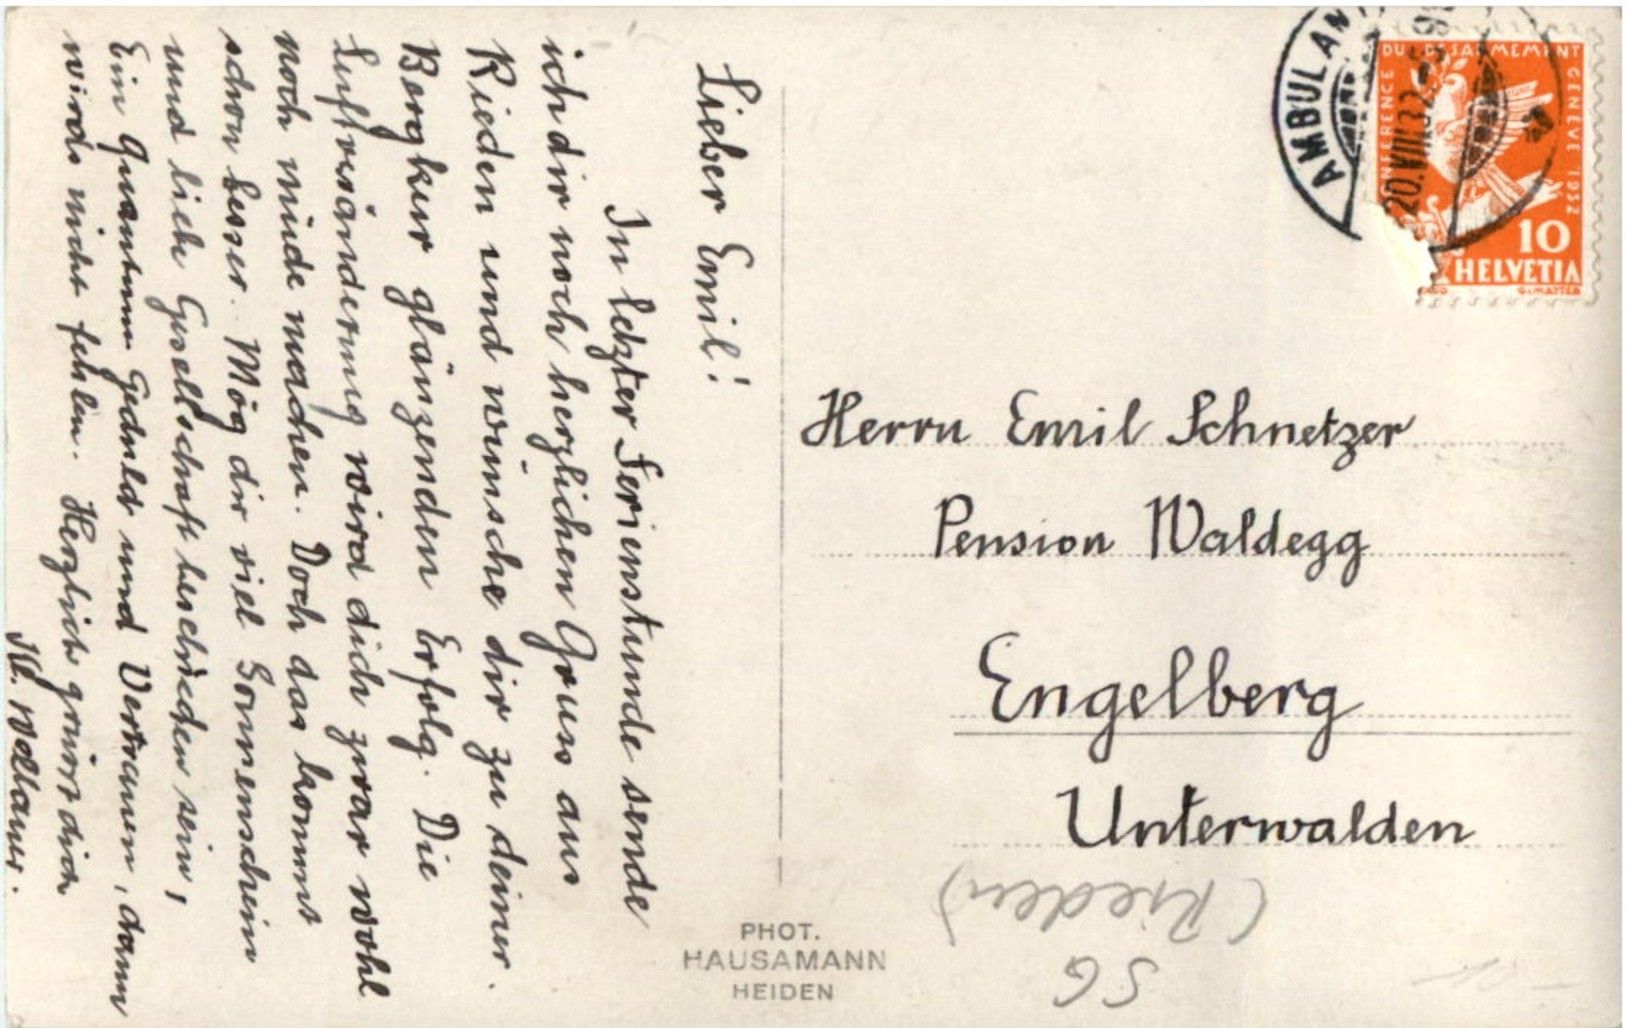 Lieber Emil!
In letzter Ferienstunde sende
ich dir noch herzlichen Gruss aus
Rieden und wünsche dir zu deiner
Bergkur glänzenden Erfolg. Die
Luftveränderung wird dich zwar wohl
noch müde machen. Doch das kommt
schon besser. Mög dir viel Sonnenschein
und liebe Gesellschaft beschieden sein,
Ein Quantum Geduld und Vertrauen, dann
wirds nicht fehlen. Herzlich grüsst dich
PHOT.
HAUSAMANN
HEIDEN
AMBULAN
20.VIII.32
CONFERENCE DU DESARMEMENT GENEVE 1932
10
HELVETIA
Herrn Emil Schnetzer
Pension Waldegg
Engelberg
Unterwalden
(Rieden)
SG